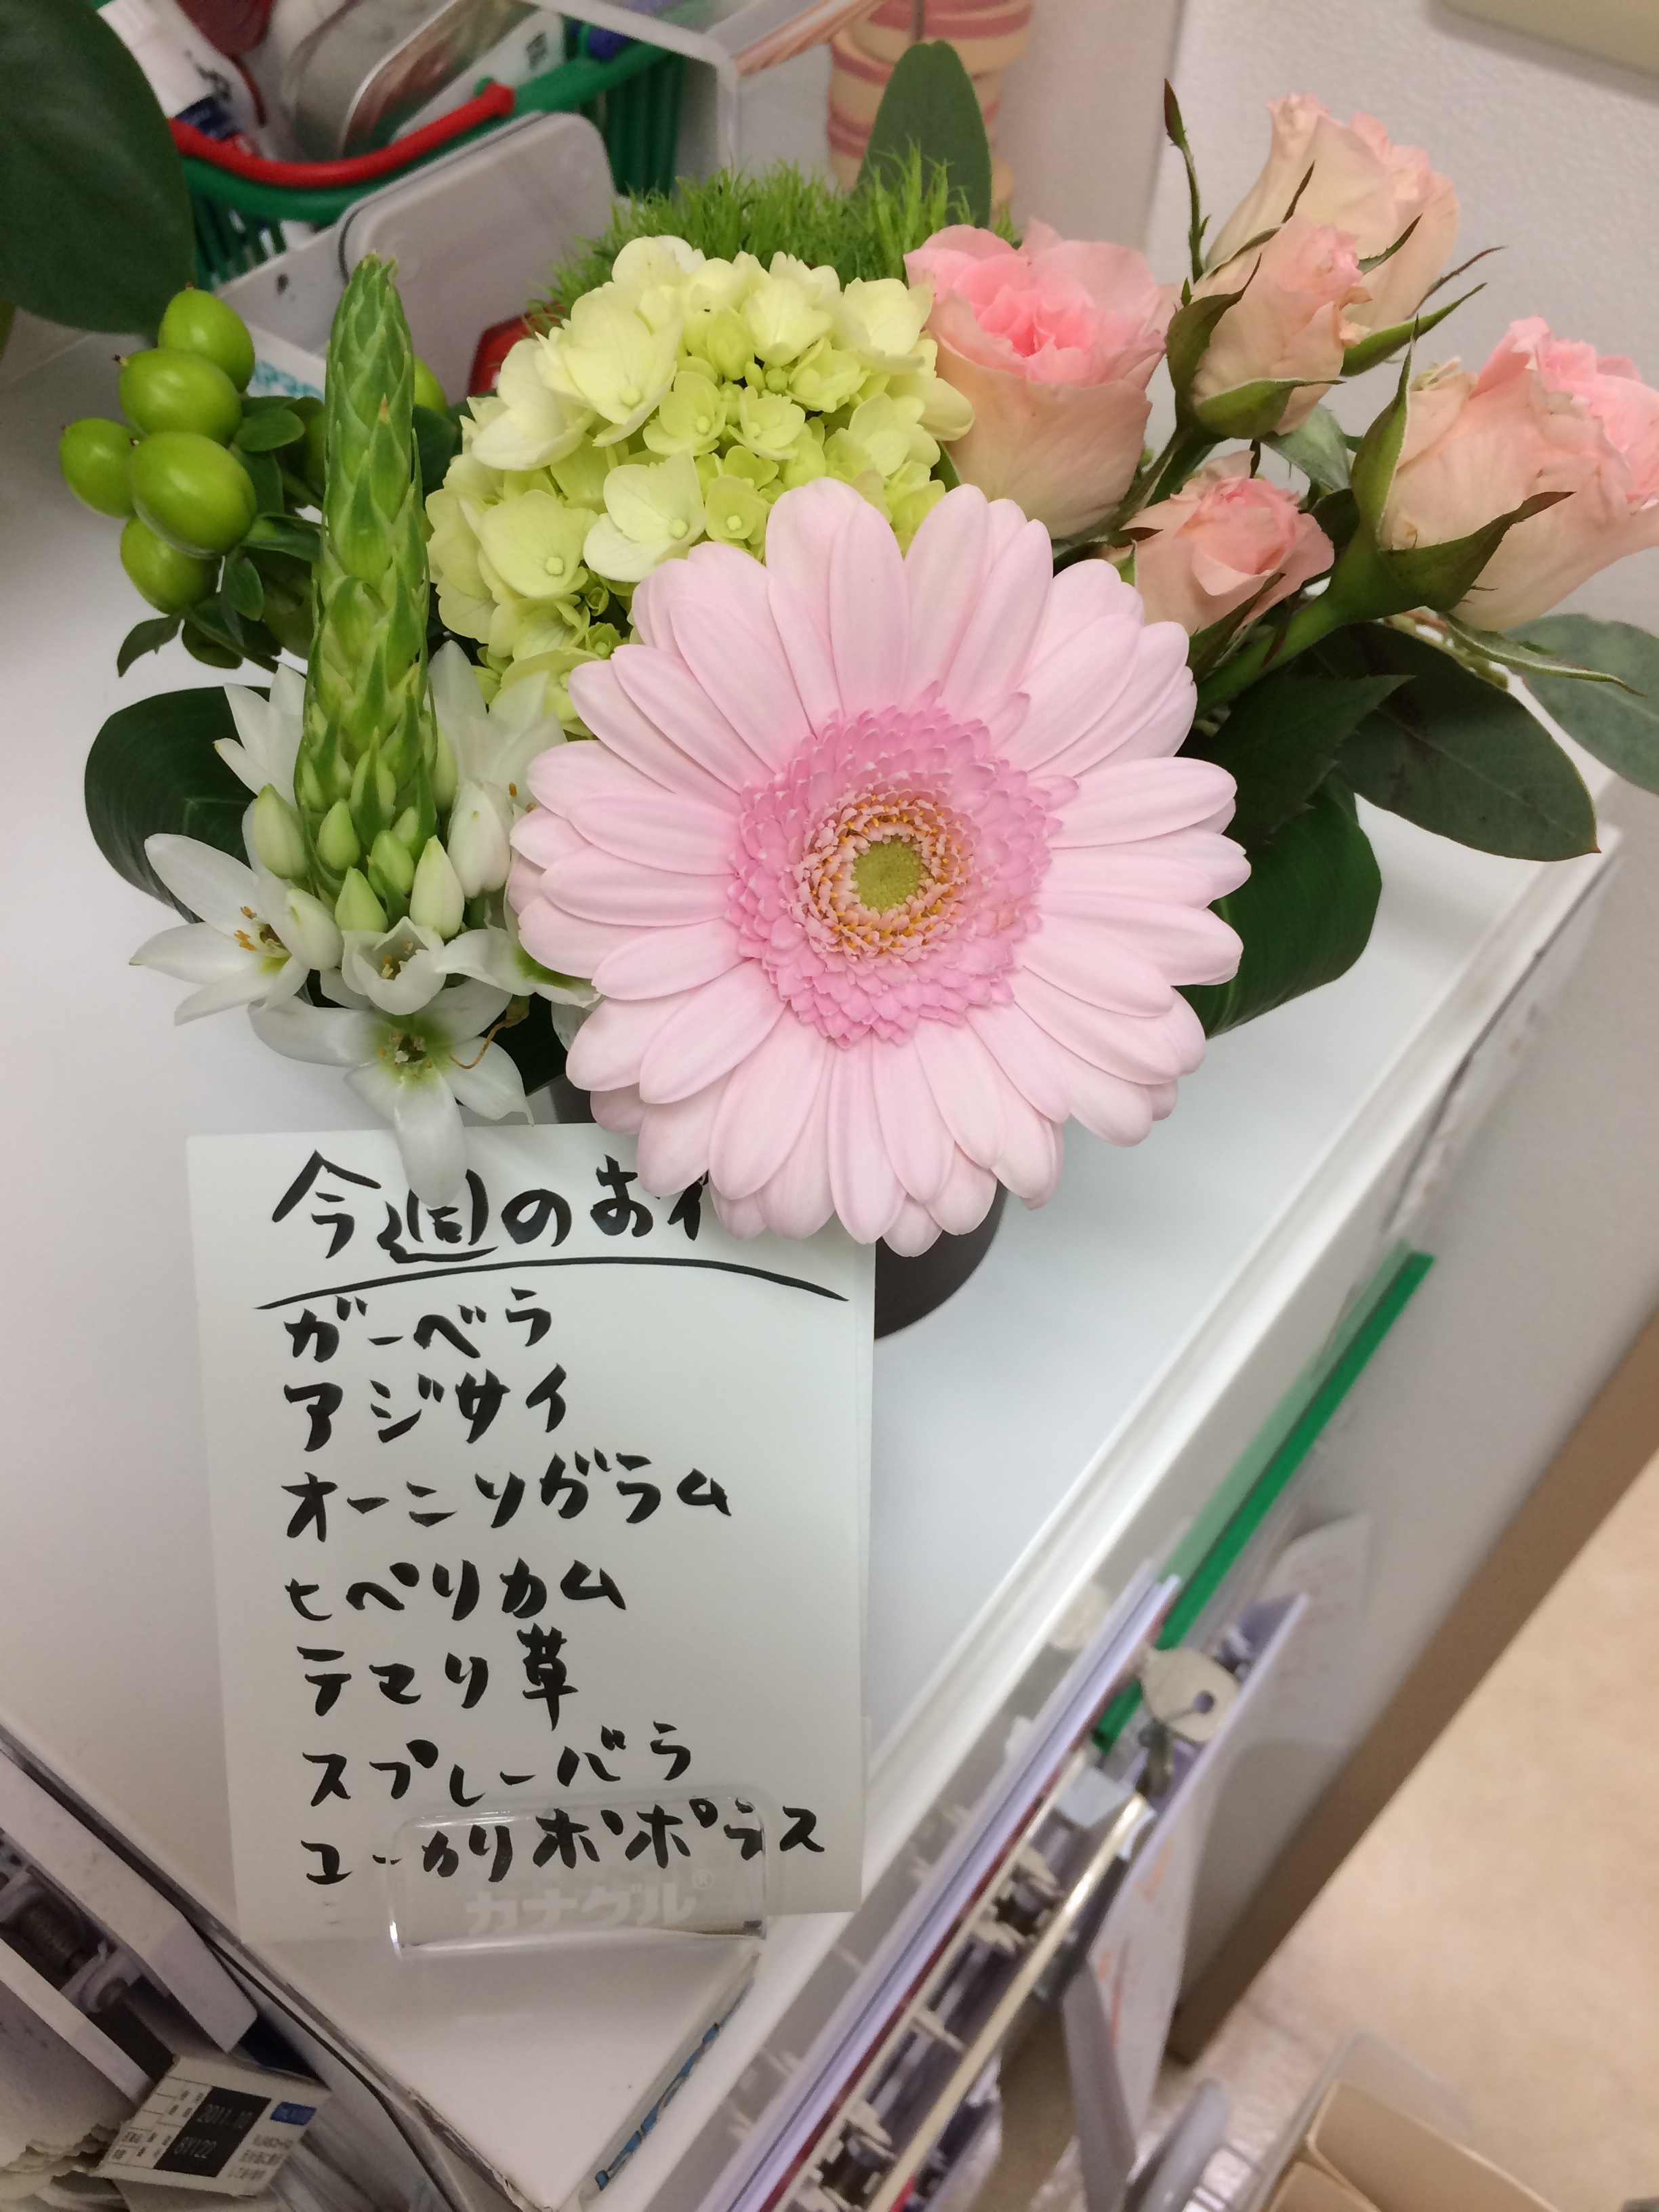 今週のお
ガーベラ
アジサイ
オーニソガラム
ヒペリカム
テマリ草
スプレーバラ
ユーカリポポラス
カナゲル®
2011.10
8Y122